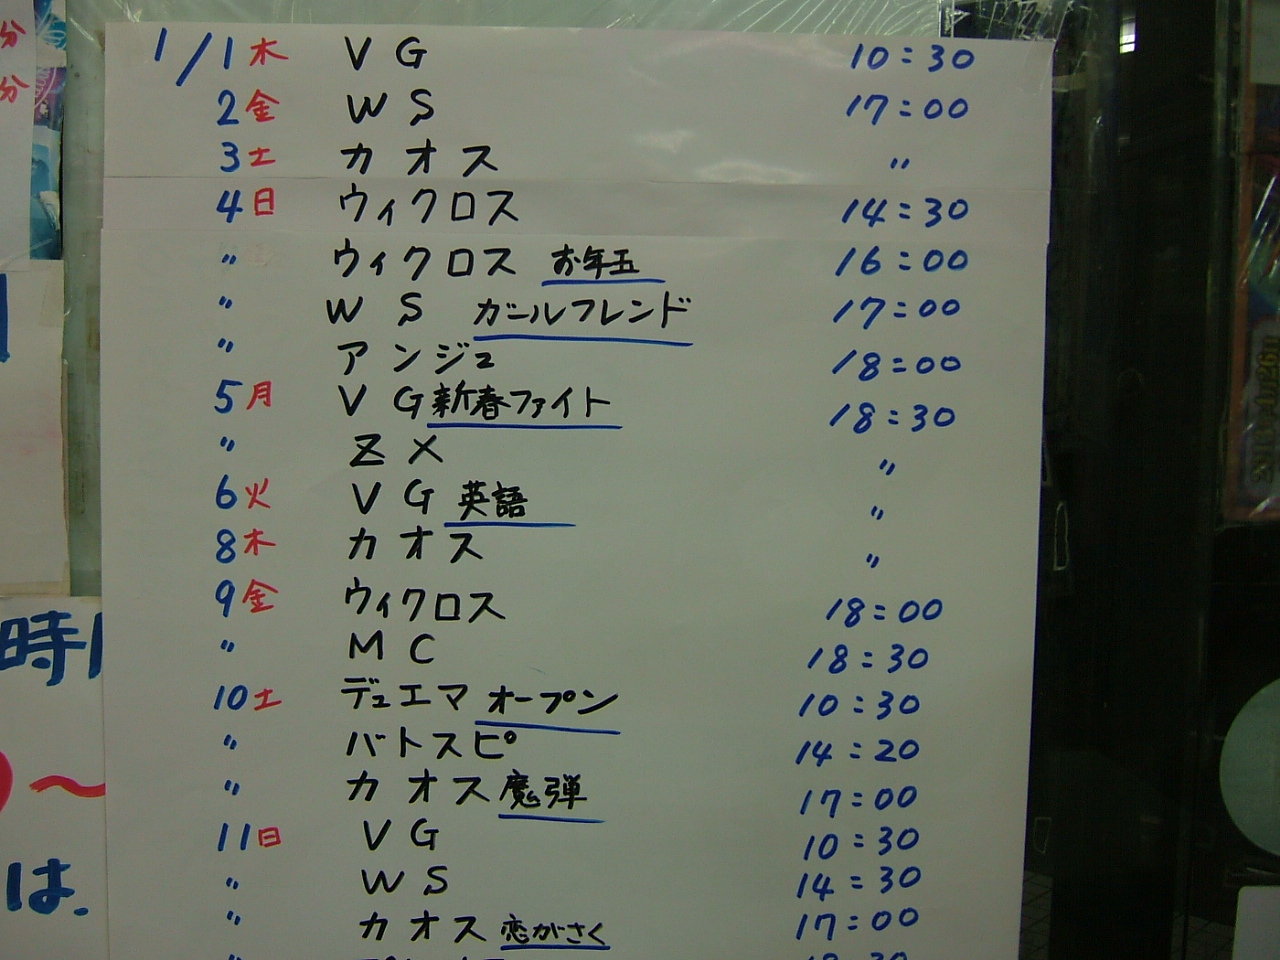 1/1 木 VG 10:30
2 金 WS 17:00
3 土 カオス 〃
4 日 ウィクロス 14:30
〃 ウィクロス お年玉 16:00
〃 WS ガールフレンド 17:00
〃 アンジュ 18:00
5 月 VG 新春ファイト 18:30
〃 ZX 〃
6 火 VG 英語 〃
8 木 カオス 〃
9 金 ウィクロス 18:00
〃 MC 18:30
10 土 デュエマ オープン 10:30
〃 バトスピ 14:20
〃 カオス 魔弾 17:00
11 日 VG 10:30
〃 WS 14:30
〃 カオス 恋がさく 17:00
分
分
時
〜
は.